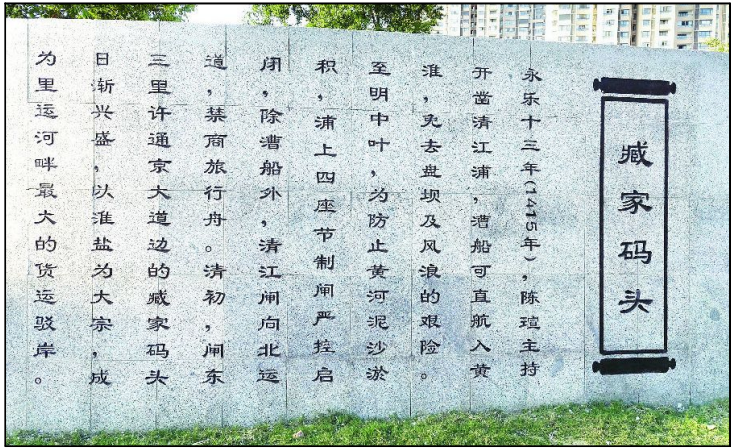 臧家码头
永乐十三年(1415年)，陈瑄主持
开凿清江浦，漕船可直航入黄
淮，免去盘坝及风浪的艰险。
至明中叶，为防止黄河泥沙淤
积，浦上四座节制闸严控启
闭，除漕船外，清江闸向北运
道，禁商旅行舟。清初，闸东
三里许通京大道边的臧家码头
日渐兴盛，以淮盐为大宗，成
为里运河畔最大的货运驳岸。